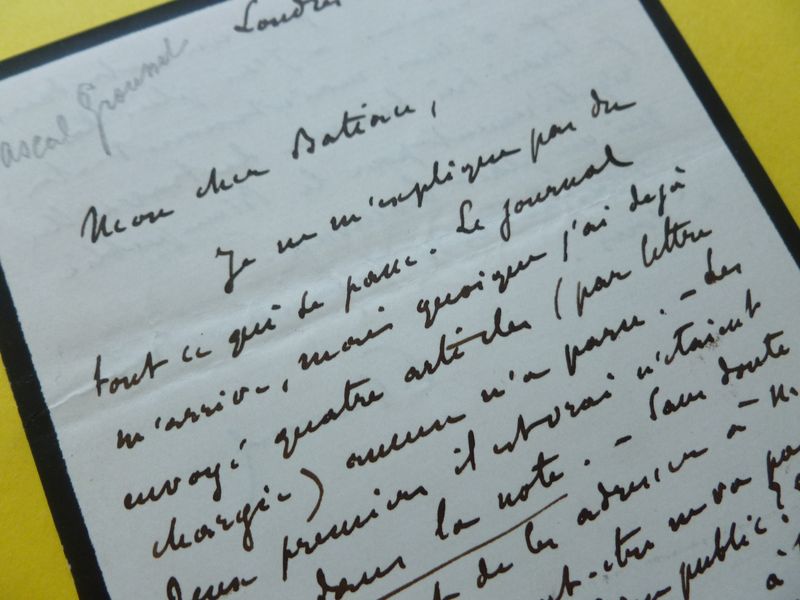 Londres
Pascal Grousset
Mon cher Batiau,
Je ne m'explique pas du
tout ce qui se passe. Le journal
m'arrive, mais quoique j'ai dejà
envoyé quatre articles (par lettre
chargée) aucun n'a paru. - Les
deux premiers il est vrai n'étaient
dans la note. - Sans doute
de les adresser à
peut-être
public
à